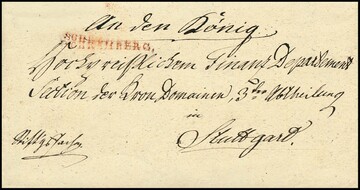 An den König
SCHRAMBERG.
Hochpreißlichem Finanz Departement
Section der Kron Domainen, 3ter Abtheilung
in
Stuttgart.